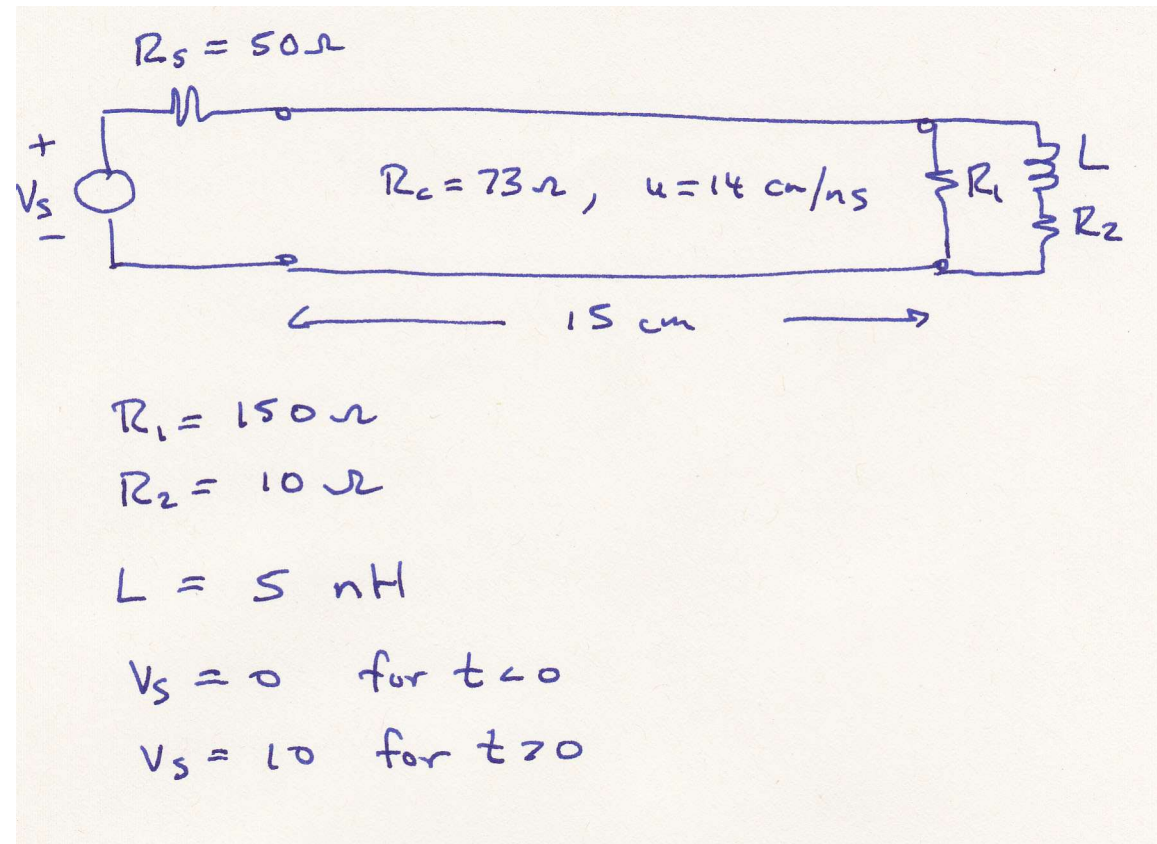 Rs = 50Ω
+
Vs
−
Rc = 73Ω, u = 14 cm/ns
R1
L
R2
15 cm
R1 = 150Ω
R2 = 10Ω
L = 5 nH
Vs = 0 for t < 0
Vs = 10 for t > 0